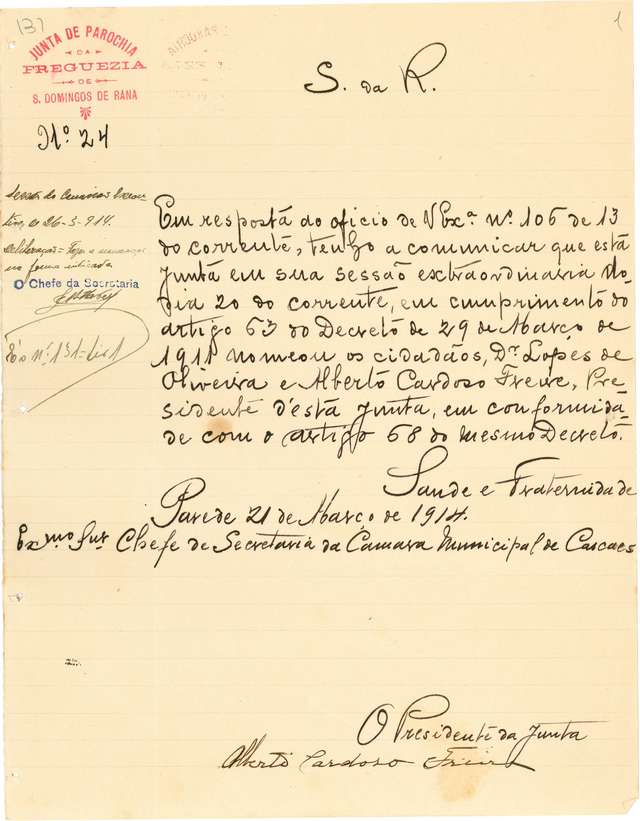 137
1
JUNTA DE PAROCHIA
DA
FREGUEZIA
DE
S. DOMINGOS DE RANA
Nº 24
S. da R.
26-3-914.
O Chefe da Secretaria
Em resposta ao oficio de V Exª nº 106 de 13
do corrente, tenho a comunicar que esta
Junta em sua sessão extraordinaria do
dia 20 do corrente, em cumprimento do
artigo 63 do Decreto de 29 de Março de
1911 nomeou os cidadãos, Dr Lopes de
Oliveira e Alberto Cardoso Freire, Pre-
sidente d'ésta Junta, em conformida-
de com o artigo 68 do mesmo Decreto.
Saude e Fraternidade
Parede 21 de Março de 1914.
Exmo Snr Chefe de Secretaria da Camara Municipal de Cascaes
O Presidente da Junta
Alberto Cardoso Freire